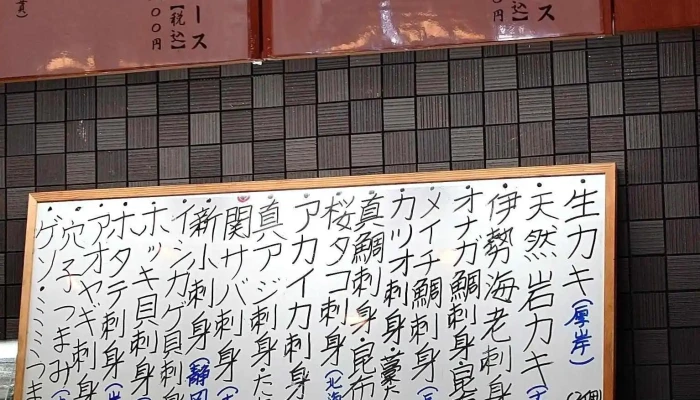 ース
【税込】
００円
ース
込】
円
・生カキ(厚岸)
・天然岩カキ
・伊勢海老刺身
・オナガ鯛刺身・昆
・メイチ鯛刺身
・カツオ刺身・藁た
・真鯛刺身・昆布
・桜タコ刺身(北海
・アカイカ刺身
・真アジ刺身・た
・関サバ刺身
・新小刺身(静岡
・イシカゲ貝刺身
・ホッキ貝刺身
・ホタテ刺身
・アオヤギ刺身
・穴子つまみ
・ゲソ・ミミつま